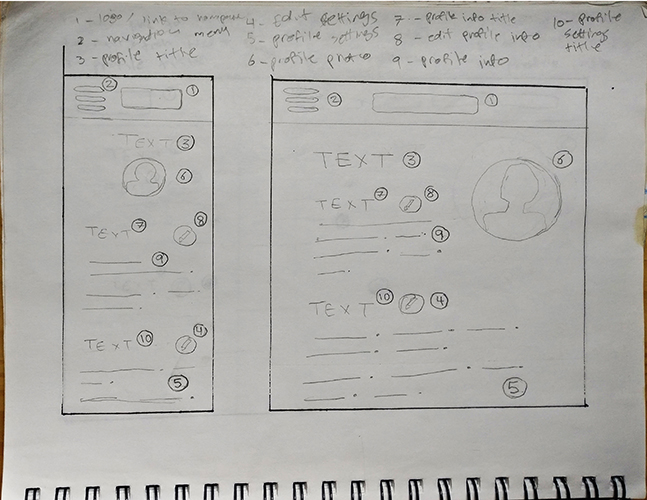 1 - logo / link to homepage
2 - navigation menu
3 - profile title
4 - Edit settings
5 - profile settings
6 - profile photo
7 - profile info title
8 - edit profile info
9 - profile info
10 - profile
settings
title
2 1
TEXT 3
6
TEXT 7 8
9
TEXT 10 4
5
2 1
TEXT 3 6
TEXT 7 8
9
TEXT 10 4
5